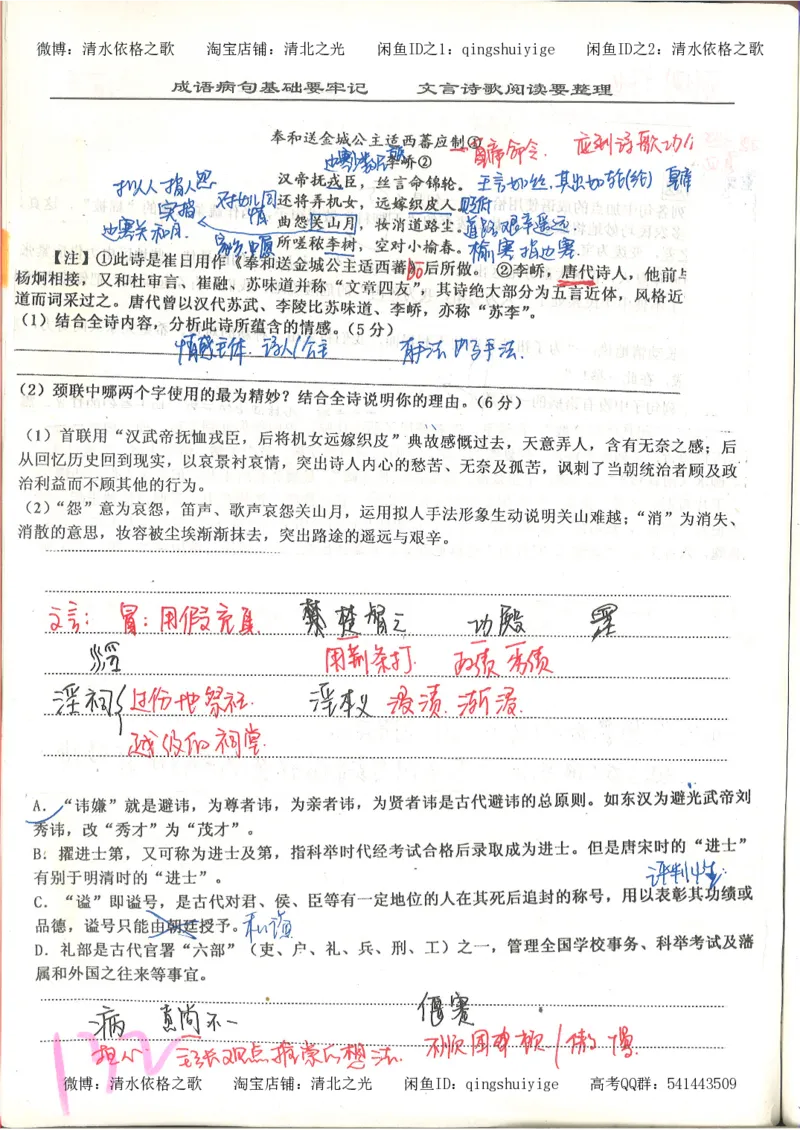 微博：清水依格之歌　　淘宝店铺：清北之光　　闲鱼ID之1：qingshuiyige　　闲鱼ID之2：清水依格之歌
成语病句基础要牢记　　文言诗歌阅读要整理
奉和送金城公主适西蕃应制①
皇帝命令. 应制诗歌功
李峤②
汉帝抚戎臣，丝言命锦轮。
王言如丝,其出如
还将弄机女，远嫁织皮人。
曲怨关山月，妆消道路尘。
道路艰辛遥远.
所嗟秾李树，空对小榆春。
榆塞 指边塞
拟人 指人怨
实指
边塞关和月.
【注】①此诗是崔日用作《奉和送金城公主适西蕃》后所做。　②李峤，唐代诗人，他前与
杨炯相接，又和杜审言、崔融、苏味道并称“文章四友”，其诗绝大部分为五言近体，风格近
道而词采过之。唐代曾以汉代苏武、李陵比苏味道、李峤，亦称“苏李”。
（1）结合全诗内容，分析此诗所蕴含的情感。（5 分）
情感主体. 诗人/公主　　有手法 必写手法.
（2）颈联中哪两个字使用的最为精妙？结合全诗说明你的理由。（6 分）
（1）首联用“汉武帝抚恤戎臣，后将机女远嫁织皮”典故感慨过去，天意弄人，含有无奈之感；后
从回忆历史回到现实，以哀景衬哀情，突出诗人内心的愁苦、无奈及孤苦，讽刺了当朝统治者顾及政
治利益而不顾其他的行为。
（2）“怨”意为哀怨，笛声、歌声哀怨关山月，运用拟人手法形象生动说明关山难越；“消”为消失、
消散的意思，妆容被尘埃渐渐抹去，突出路途的遥远与艰辛。
文言： 冒：用假充真 樊楚督之 功殿 罪
淫 用荆条打. 政绩 劣绩
淫祠 过份地祭祀. 淫本义 浸渍. 渐浸.
越级的祠堂.
A．“讳嫌”就是避讳，为尊者讳，为亲者讳，为贤者讳是古代避讳的总原则。如东汉为避光武帝刘
秀讳，改“秀才”为“茂才”。
B．擢进士第，又可称为进士及第，指科举时代经考试合格后录取成为进士。但是唐宋时的“进士”
有别于明清时的“进士”。
评判性
C．“谥”即谥号，是古代对君、侯、臣等有一定地位的人在其死后追封的称号，用以表彰其功绩或
品德，谥号只能由朝廷授予。私谥
D．礼部是古代官署“六部”（吏、户、礼、兵、刑、工）之一，管理全国学校事务、科举考试及藩
属和外国之往来等事宜。
病 意尚不一 偃蹇
担心 主张观点推崇的想法. 不顺 困 / 傲慢.
132
微博：清水依格之歌　　淘宝店铺：清北之光　　闲鱼ID：qingshuiyige　　高考QQ群：541443509